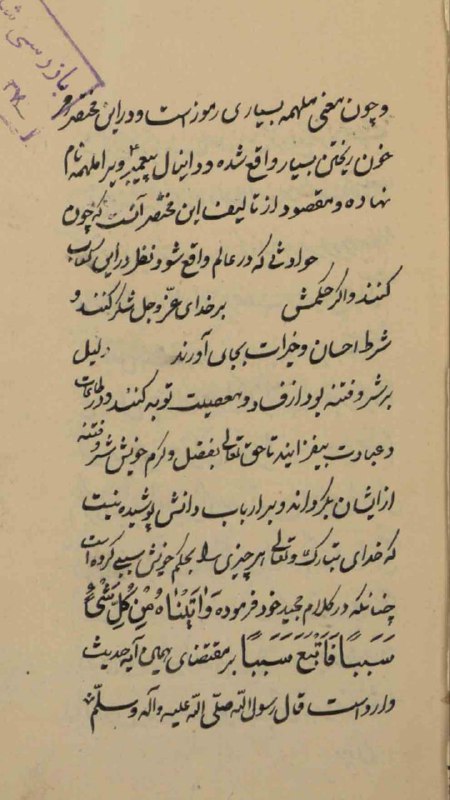 بازرسی
۳۷
وچون معنی ملهمه بسیاری رموز است و در این مختصر
خون ریختن بسیار واقع شده و دانیال پیغمبر ویرا ملهمه نام
نهاده و مقصود از تالیف این مختصر آنست که چون
حوادثی که در عالم واقع شود نظر در این کتاب
کنند و اگر حکمش بر خدای عزّ وجل شکر کنند و
شرط احسان و خیرات بجای آورند دلیل
بر شر و فتنه بود از فساد و معصیت توبه کنند و در طاعات
و عبادت بیفزایند تا حق تعالی بفضل و کرم خویش شر و فتنه
از ایشان بگرداند و بر ارباب دانش پوشیده نیست
که خدای تبارک و تعالی هر چیزی را بحکم خویش سببی کرده است
چنانکه در کلام مجید خود فرموده وَاٰتَیْنَاهُ مِنْ کُلِّ شَیْءٍ
سَبَبًا فَاَتْبَعَ سَبَبًا بر مقتضای همین آیه حدیث
وارد است قال رسول الله صلّی الله علیه وآله وسلّم